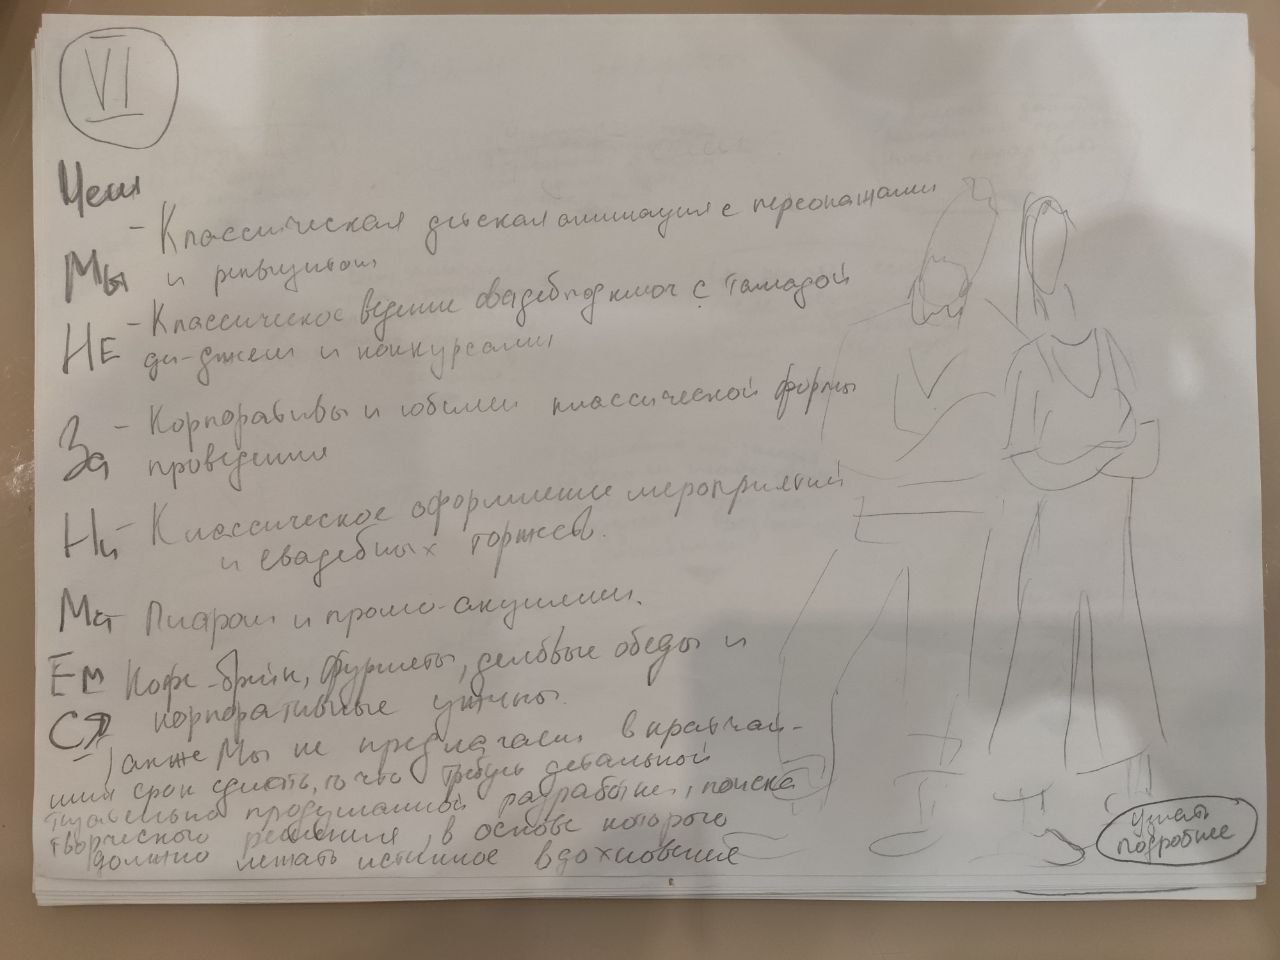 VI
Чем
Мы
Не
За
Ни
Ма
Ем
Ся
- Классическая детская анимация с персонажами
и реквизитом
- Классическое ведение свадеб под ключ с тамадой
ди-джеем и конкурсами
- Корпоративы и юбилеи классической формы
проведения
- Классическое оформление мероприятий
и свадебных торжеств.
- Пиаром и промо-акциями.
Кофе-брейк, фуршеты, деловые обеды и
корпоративные ужины.
Также мы не предлагаем в кратчай-
ший срок сделать, то что требует детальной
тщательно продуманной разработки, поиска
творческого решения, в основе которого
должно лежать истинное вдохновение
узнать
подробнее